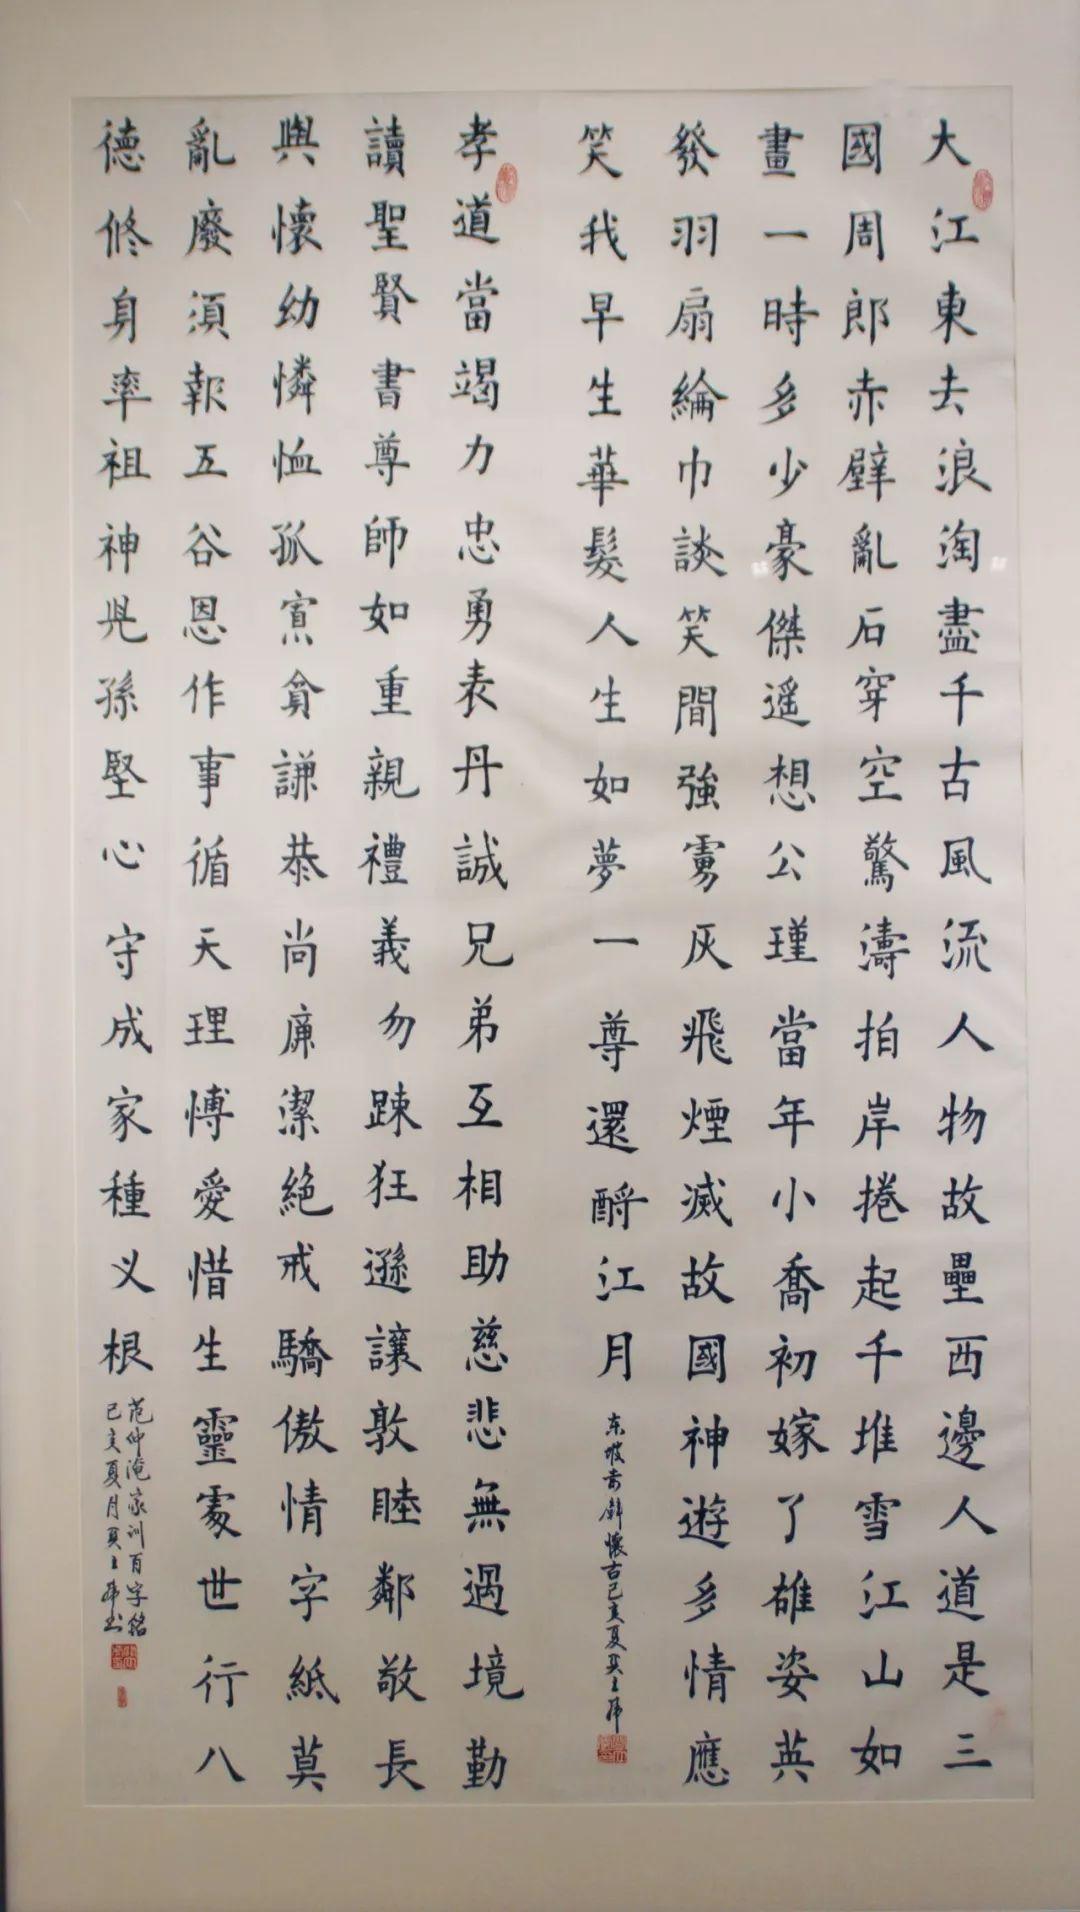 大江東去浪淘盡千古風流人物故壘西邊人道是三
國周郎赤壁亂石穿空驚濤拍岸捲起千堆雪江山如
畫一時多少豪傑遥想公瑾當年小喬初嫁了雄姿英
發羽扇綸巾談笑間強虜灰飛煙滅故國神遊多情應
笑我早生華髮人生如夢一尊還酹江月
东坡赤壁懷古己亥夏
孝道當竭力忠勇表丹誠兄弟互相助慈悲無過境勤
讀聖賢書尊師如重親禮義勿踈狂遜讓敦睦鄰敬長
與懷幼憐恤孤寡貧謙恭尚廉潔絕戒驕傲情字紙莫
亂廢須報五谷恩作事循天理愽愛惜生靈處世行八
德修身率祖神兒孫堅心守成家種义根
范仲淹家训百字铭
己亥夏月书